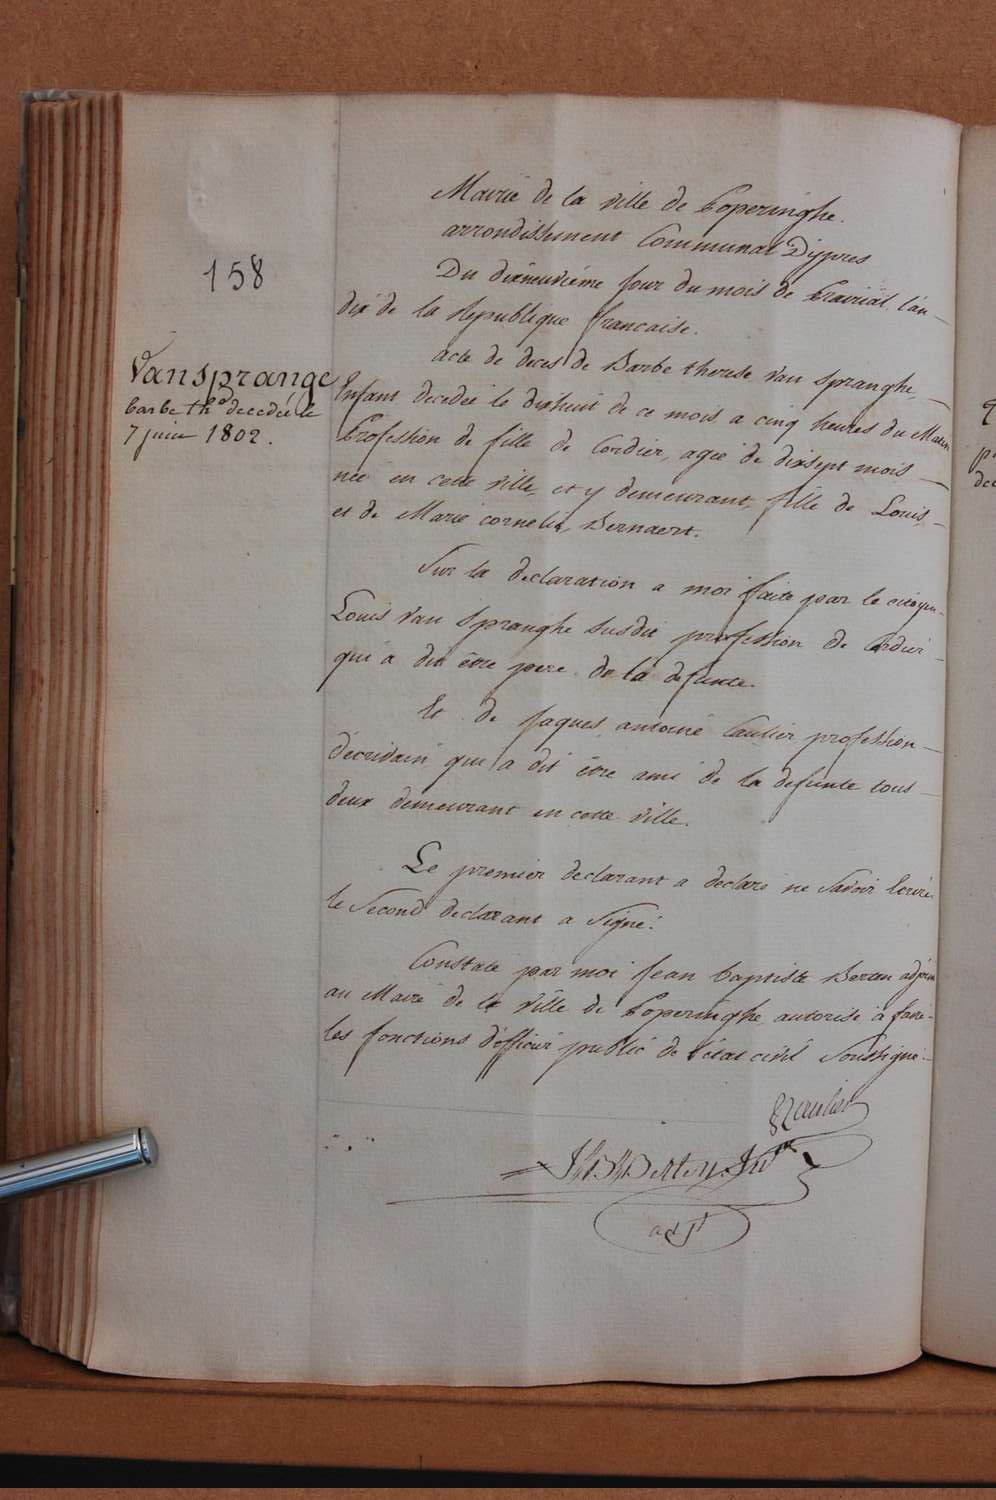 158
Vansprange
barbe th.e decedée le
7 juin 1802.
Mairie de la ville de Poperinghe.
arrondissement Communal D'ypres
Du dixneuvieme jour du mois de Prairial l'an
dix de la Republique francaise.
acte de deces de Barbe therese van spranghe,
Enfant decedée le dixhuit de ce mois a cinq heures du Matin
Profession de fille de Cordier, agée de dixsept mois
née en cette ville, et y demeurant, fille de Louis,
et de Marie cornelia Bernaert.
Sur la declaration a moi faite par le citoyen
Louis van Spranghe susdit profession de Cordier
qui a dit être pere de la defunte.
Et de Jaques antoine Caulier profession
d'ecrivain qui a dit être ami de la defunte tous
deux demeurant en cette ville.
Le premier declarant a declaré ne savoir Ecrire
le Second declarant a Signé.
Constaté par moi Jean baptiste adjoint
au Maire de la ville de Poperinghe autorisé à faire
les fonctions d'officier public de l'état civil Soussigné
Caulier
adjt